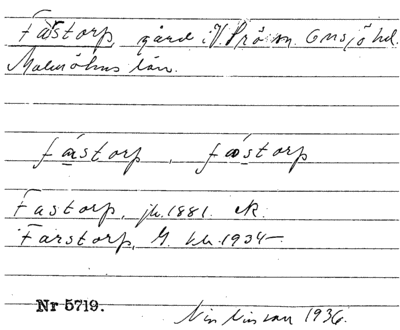 Fastorp gård i V. Strö sn. Onsjö hd.
Malmöhus län.
fástorp, fástorp
Fastorp, jb. 1881. ek.
Farstorp, G. kb. 1934
Nr 5719.
1936.